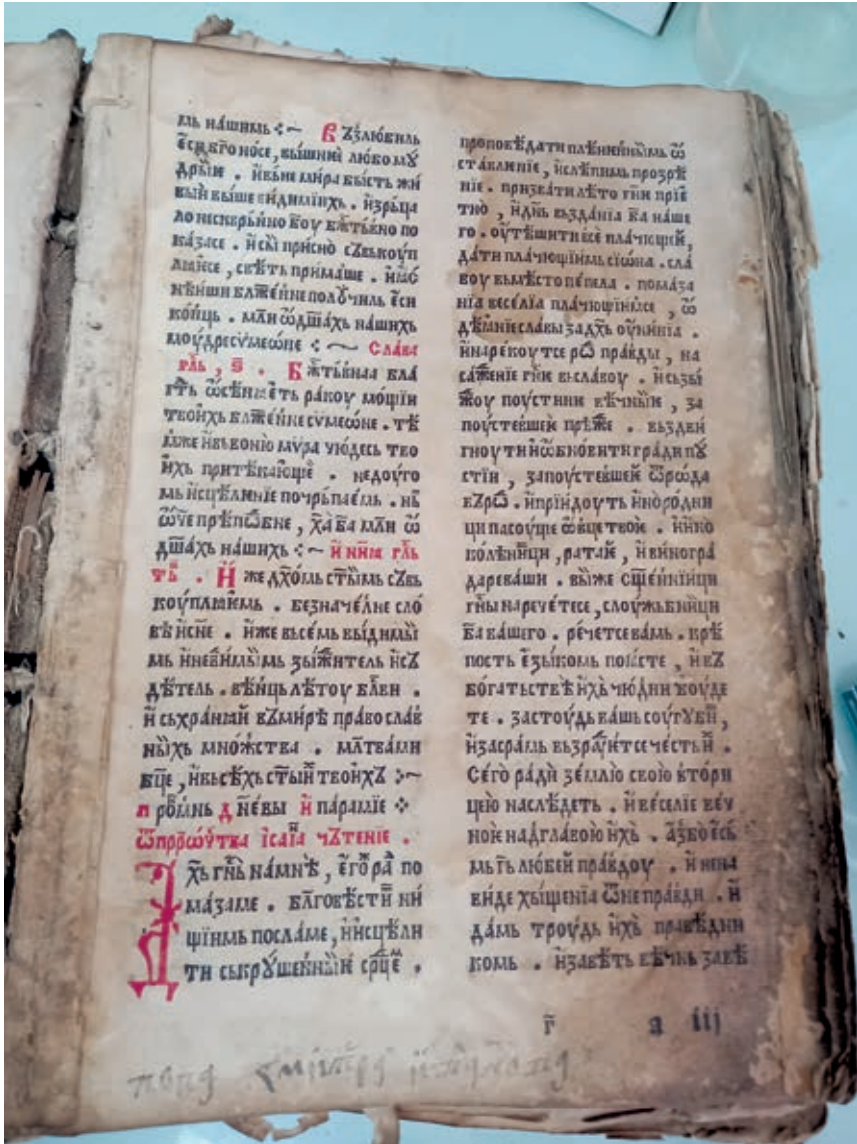 мь на́шимь :~ В ъзлю́биль
є҆сѝ бг҃о но́се , вы́шнїи любому́
дрыїе . и҆ вьне ми́ра бы́сть жи
вы́и вы́ше ви́димїихь . и҆ зрьца
ло нескврьнно бо́у бж҃тьвно по
ка́засе . и҆ сы̀ при́сно съвькоуп
лꙗ́ѥсе , свѣ́ть прима́ше . и҆ ꙗ҆с
нѣ́иши блже҃нне полоу́чиль є҆си
ко́нць . мл҃и ѡ҆ дш҃ахь на́шихь
моу́дре сѵмеѡ́не :~ Сла́ва
гл҃ь , ѕ҃ . Б ж҃тьвнаа бла
гт҃ь ѡ҆сѣнꙗ́еть ра́коу мо́щїи
твои́хь блже҃нне сѵмеѡ́не . тѣ
мже и҆ вь воню̀ мѵ́ра чю́десь тво
и҆хь притѣка́ющїе . недоуго
мь и҆сцѣлинїе почрьпа́емь . нь
ѡ҆́ч҃е прѣпо́бне , ха҃ ба҃ мл҃и ѡ҆
дш҃ахь на́шихь :~ и҆ нн҃ꙗ гл҃ь
тъ҃ . И҆ же дх҃о́мь ст҃ы́имь съвь
коу́плꙗимь . безначе́лне сло́
вѣ и҆ сн҃е . и҆́же вьсе́мь ви́димы
мь и҆ неви́мымь зыжи́тель и҆ съ
дѣ́тель . вѣ́нць лѣ́тоу бл҃ви .
и҆ схранꙗ́й въ ми́рѣ пра́вослав
ныхь мно́жства . мл҃твами
бц҃е , и҆ вьсѣ́хь ст҃ы́и твои́хъ :~
п ро́мнь д н҃евы и҆ па́рамїе
ѿ про́ѡⷬ҇чтва і҆са́їа чъ́тенїе .
Д х҃ь гн҃ь на́ мнѣ , є҆го́ ра́ по
ма́за ме . бл҃говѣ́стїи ни́
щїимь посла́ ме , и҆ и҆сцѣли
ти ськру́шенныи ср҃це .
проповѣ́дати плѣ́ннныимь ѿ
ста́вленїе , и҆ слѣпимь прозрѣ
нїе . призва́ти лѣ́то гн҃и прїе
тно , и҆ дн҃ь възда́нїа ба҃ на́ше
го . оу҆тѣ́шити всѐ пла́чющеи ,
да́ти пла́чющїимь сїѡ́на . сла́
воу вьмѣ́сто пе́пела . пома́за
нїа весе́лїа пла́чющїимсе , ѡ҆
дѣ́ꙗнїе сла́вы за дх҃ь оу҆ни́нїа .
и҆ наре́коутсе рѡ̀ пра́вды , на
саже́нїе гн҃и вь сла́воу . и҆ сьзы
жоу поу́стини вѣ́чныи , за
поу́стевшеи прѣ́же . въздви́
гноути и҆ ѡ҆бнови́ти гра́ди пу́
стїи , запоу́стевшеи ѿ ро́да
въ рѡ̀ . и҆ прїидоу́ть и҆норо́дни
ци пасоу́ще ѡ҆́вце твое . и҆ и҆но
ко́лѣнници , рата́и , и҆ виногра́
даре ва́ши . вы́же сщ҃е́нницїи
гн҃ы наре́четесе , слоу́жьбници
ба҃ ва́шего . ре́четсе вамь . крѣ́
пость є҆зы́комь поꙗ́сте , и҆ въ
бога́тьствѣ и҆хь чю́дни боу́де
те . за стоу́дь ва́шь соугу́би ,
и҆ за сра́мь възра́итсе че́сть и҆ .
Сего̀ ра́ди зе́млю свою̀ втори
цею наслѣ́деть . и҆ весе́лїе вѣч
ноѥ на́д гла́вою и҆хь . а҆́з бо є҆с
мь гь҃ любеи пра́вдоу . и҆ нена
виде хы́щенїа ѿ непра́вди . и҆
да́мь троу́дь и҆хь пра́ведни
комь . и҆ за́вѣть вѣ́чнь завѣ́
г҃ а iij